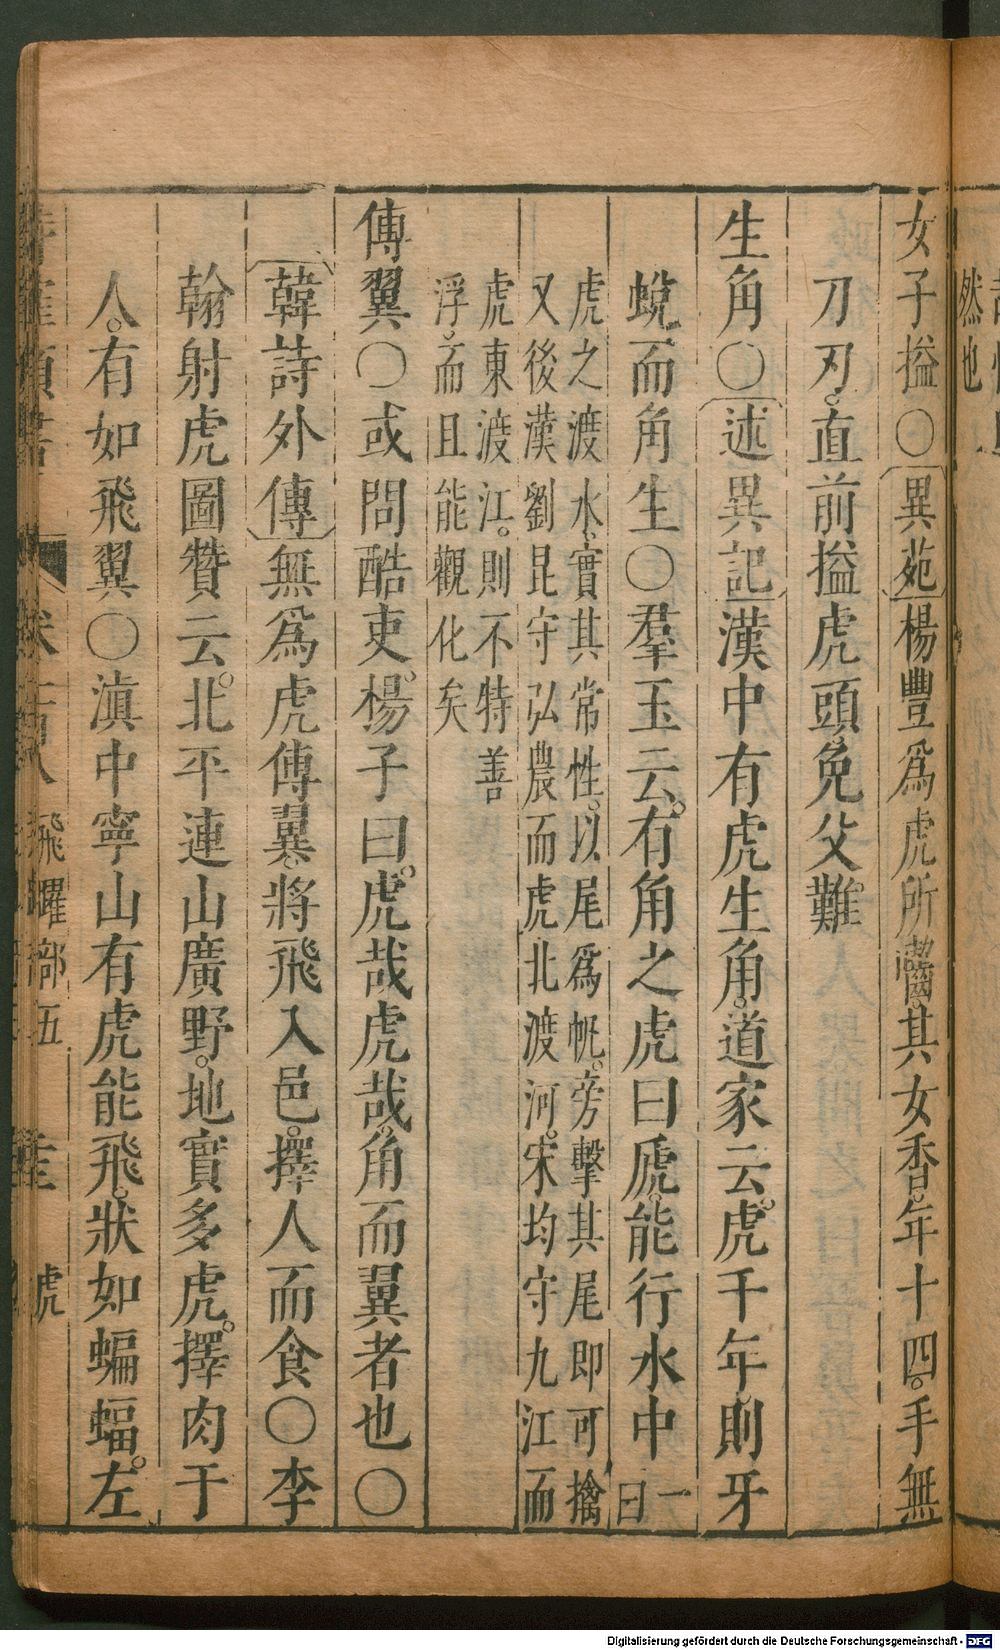 女子搤〇異苑楊豐爲虎所齧其女香年十四手無
刀刃直前搤虎頭免父難
生角〇述異記漢中有虎生角道家云虎千年則牙
蛻而角生〇羣玉云有角之虎曰虒能行水中一曰
虎之渡水實其常性以尾爲帆旁擊其尾即可擒
又後漢劉昆守弘農而虎北渡河宋均守九江而
虎東渡江則不特善
浮而且能觀化矣
傳翼〇或問酷吏楊子曰虎哉虎哉角而翼者也〇
韓詩外傳無爲虎傳翼將飛入邑擇人而食〇李
翰射虎圖贊云北平連山廣野地實多虎擇肉于
人有如飛翼〇滇中寧山有虎能飛狀如蝙蝠左
飛躍部五 虎
然也
Digitalisierung gefördert durch die Deutsche Forschungsgemeinschaft - DFG